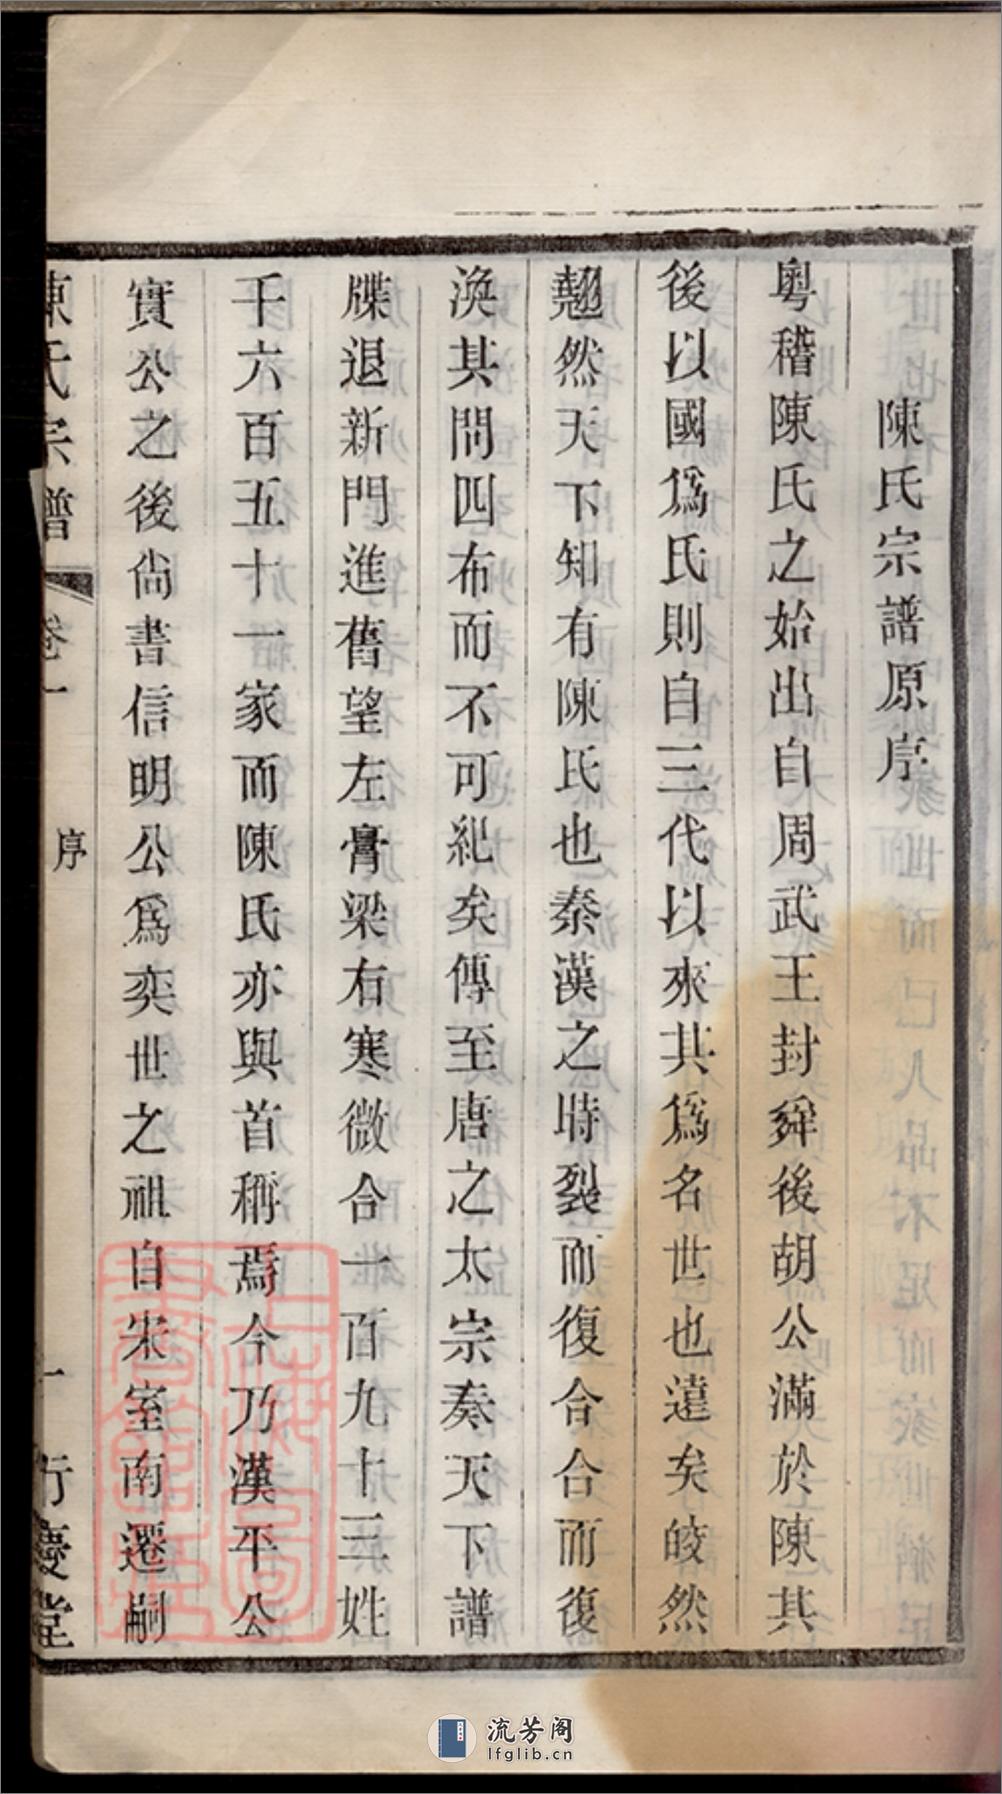 陳氏宗譜原序
粵稽陳氏之始出自周武王封舜後胡公滿於陳其
後以國爲氏則自三代以來其爲名世也遠矣皎然
翹然天下知有陳氏也秦漢之時裂而復合合而復
渙其間四布而不可紀矣傳至唐之太宗奏天下譜
牒退新門進舊望左膏梁右寒微合一百九十三姓
千六百五十一家而陳氏亦與首稱焉今乃漢平公
實公之後尙書信明公爲奕世之祖自宋室南遷嗣
陳氏宗譜 卷一 序 一 行慶堂
上海圖書館藏
流芳阁
lfglib.cn